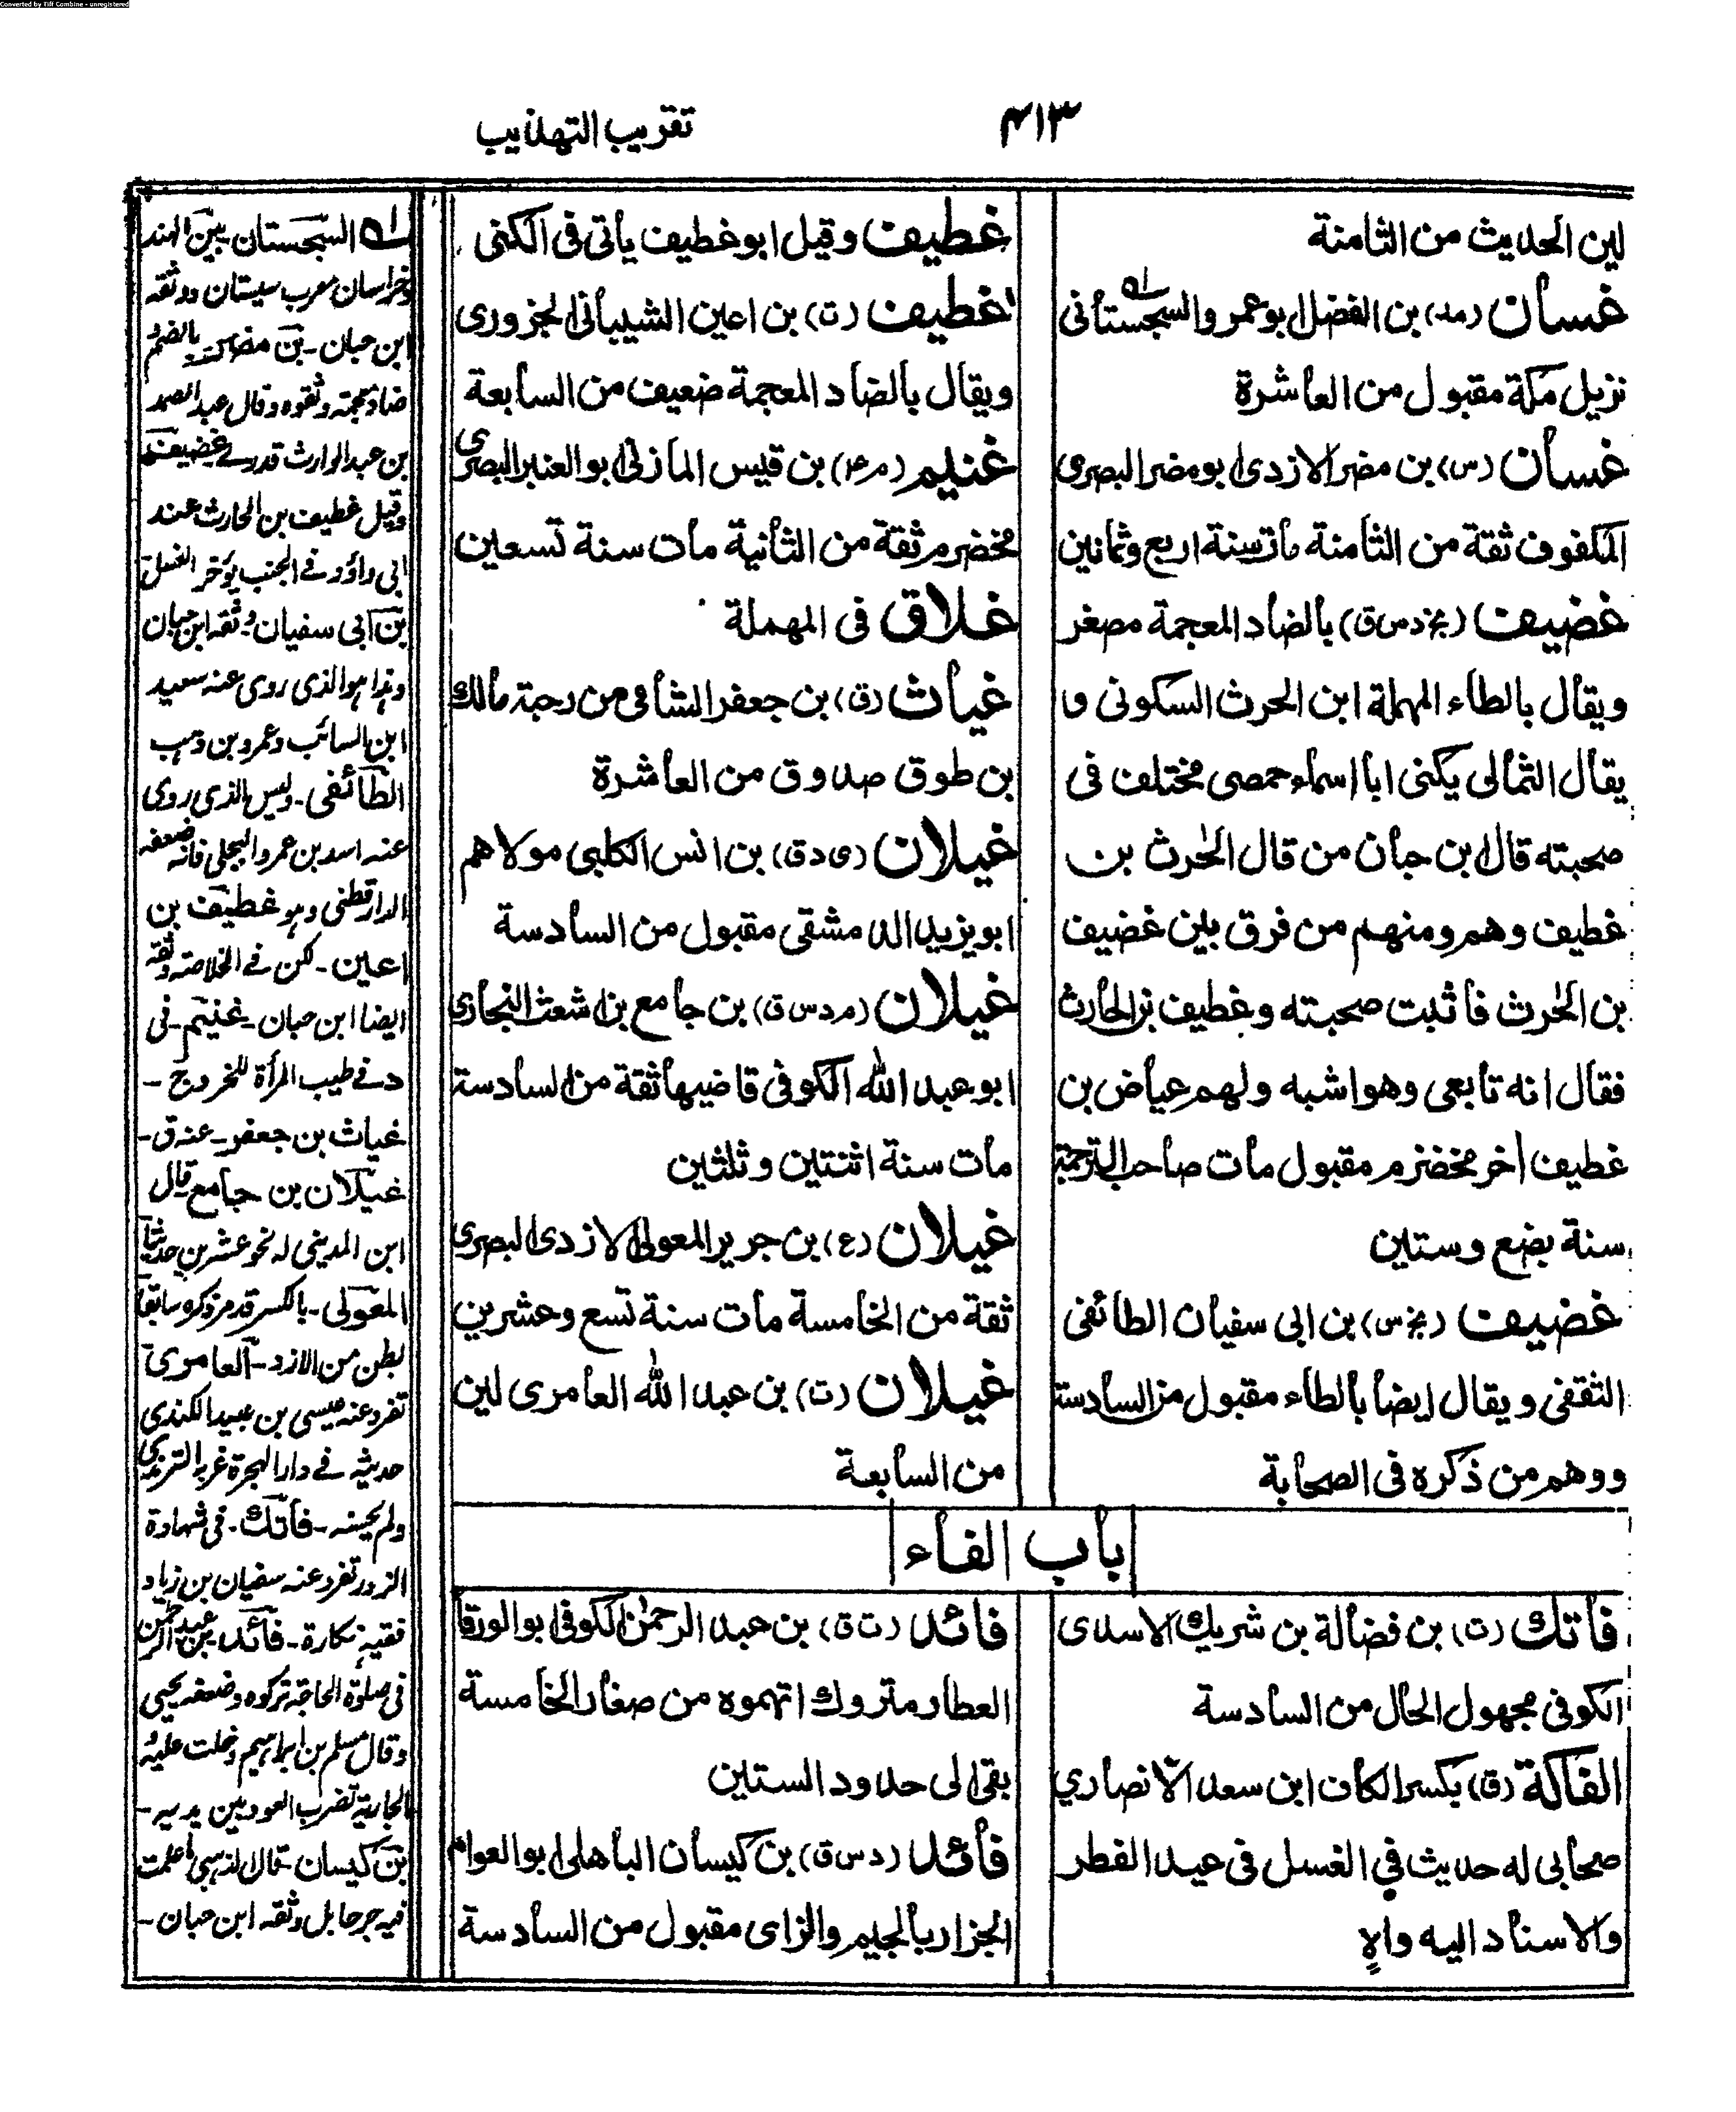 Converted by Tiff Combine - unregistered
۴۱۳
تقریب التهذیب
لین الحدیث من الثامنة
غسان (مد) بن الفضل ابو عمرو السجستانی
نزیل مکة مقبول من العاشرة
غسان (س) بن مضر الازدی ابو مضر البصری
المکفوف ثقة من الثامنة مات سنة اربع وثمانین
غضیف (بخ د س ق) بالضاد المعجمة مصغر
ویقال بالطاء المهملة ابن الحرث السکونی و
یقال الثمالی یکنی ابا اسماء حمصی مختلف فی
صحبته قال ابن حبان من قال الحرث بن
غطیف وهم ومنهم من فرق بین غضیف
بن الحرث فاثبت صحبته وغطیف بن الحارث
فقال انه تابعی وهو اشبه ولهم عیاض بن
غطیف اخر مخضرم مقبول مات صاحب الترجمة
سنة بضع وستین
غضیف (بخ س) بن ابی سفیان الطائفی
الثقفی ویقال ایضا بالطاء مقبول من السادسة
ووهم من ذکره فی الصحابة
غطیف وقیل ابو غطیف یأتی فی الکنی
غطیف (ت) بن اعین الشیبانی الجزوری
ویقال بالضاد المعجمة ضعیف من السابعة
غنیم (م ۴) بن قیس المازنی ابو العنبر البصری
مخضرم ثقة من الثانیة مات سنة تسعین
غلاق فی المهملة
غیاث (ق) بن جعفر الشامی من رحبة مالك
بن طوق صدوق من العاشرة
غیلان (ی د ق) بن انس الکلبی مولاهم
ابو یزید الدمشقی مقبول من السادسة
غیلان (م د س ق) بن جامع بن اشعث النجاری
ابو عبد الله الکوفی قاضیها ثقة من السادسة
مات سنة اثنتین وثلثین
غیلان (ع) بن جریر المعولی الازدی البصری
ثقة من الخامسة مات سنة تسع وعشرین
غیلان (ت) بن عبد الله العامری لین
من السابعة
باب الفاء
فاتك (ت) بن فضالة بن شریك الاسدی
الکوفی مجهول الحال من السادسة
الفاکة (ق) بکسر الکاف ابن سعد الانصاری
صحابی له حدیث فی الغسل فی عید الفطر
والاسناد الیه واہٍ
فائد (ت ق) بن عبد الرحمٰن الکوفی ابو الورقا
العطار متروك اتهموه من صغار الخامسة
بقی الی حدود الستین
فائد (د س ق) بن کیسان الباهلی ابو العوام
الجزار بالجیم والزای مقبول من السادسة
لہ السجستان بین الهند
وخراسان معرب سیستان ووثقه
ابن حبان - بن مضر بالضم
ضاد معجمة وثقوه وقال عبد الصمد
بن عبد الوارث قدری غضیف
وقیل غطیف بن الحارث عند
ابی داؤد فے الجنب یؤخر الغسل
بن ابی سفیان - وثقه ابن حبان
وہذا ہو الذی روی عنه سعید
ابن السائب وعمرو بن وہب
الطائفی - ولیس الذی روی
عنه اسد بن عمرو البجلی فانه ضعفه
الدارقطنی وہو غطیف بن
اعین - لکن فے الخلاصة وثقه
ایضا ابن حبان - غنیم - فی
د فے طیب المرأة للخروج -
غیاث بن جعفر - عنه ق -
غیلان بن جامع قال
ابن المدینی له نحو عشرین حدیثا
المعولی - بالکسر قد مر ذکره سابقا
بطن من الازد - العامری
تفرد عنه عیسی بن عبید الکندی
حدیثه فے دار الهجرة غربه الترمذی
ولم یحسنه - فاتك - فی شهادة
الزور تفرد عنه سفیان بن زیاد
ففیه نکارة - فائد بن عبد الرحمن
فی صلوة الحاجة ترکوه وضعفه یحیی
وقال مسلم بن ابراہیم دخلت علیه و
الجاریة تضرب العود بین یدیه -
بن کیسان - قال الذہبی ما علمت
فیه جرحا بل وثقه ابن حبان -